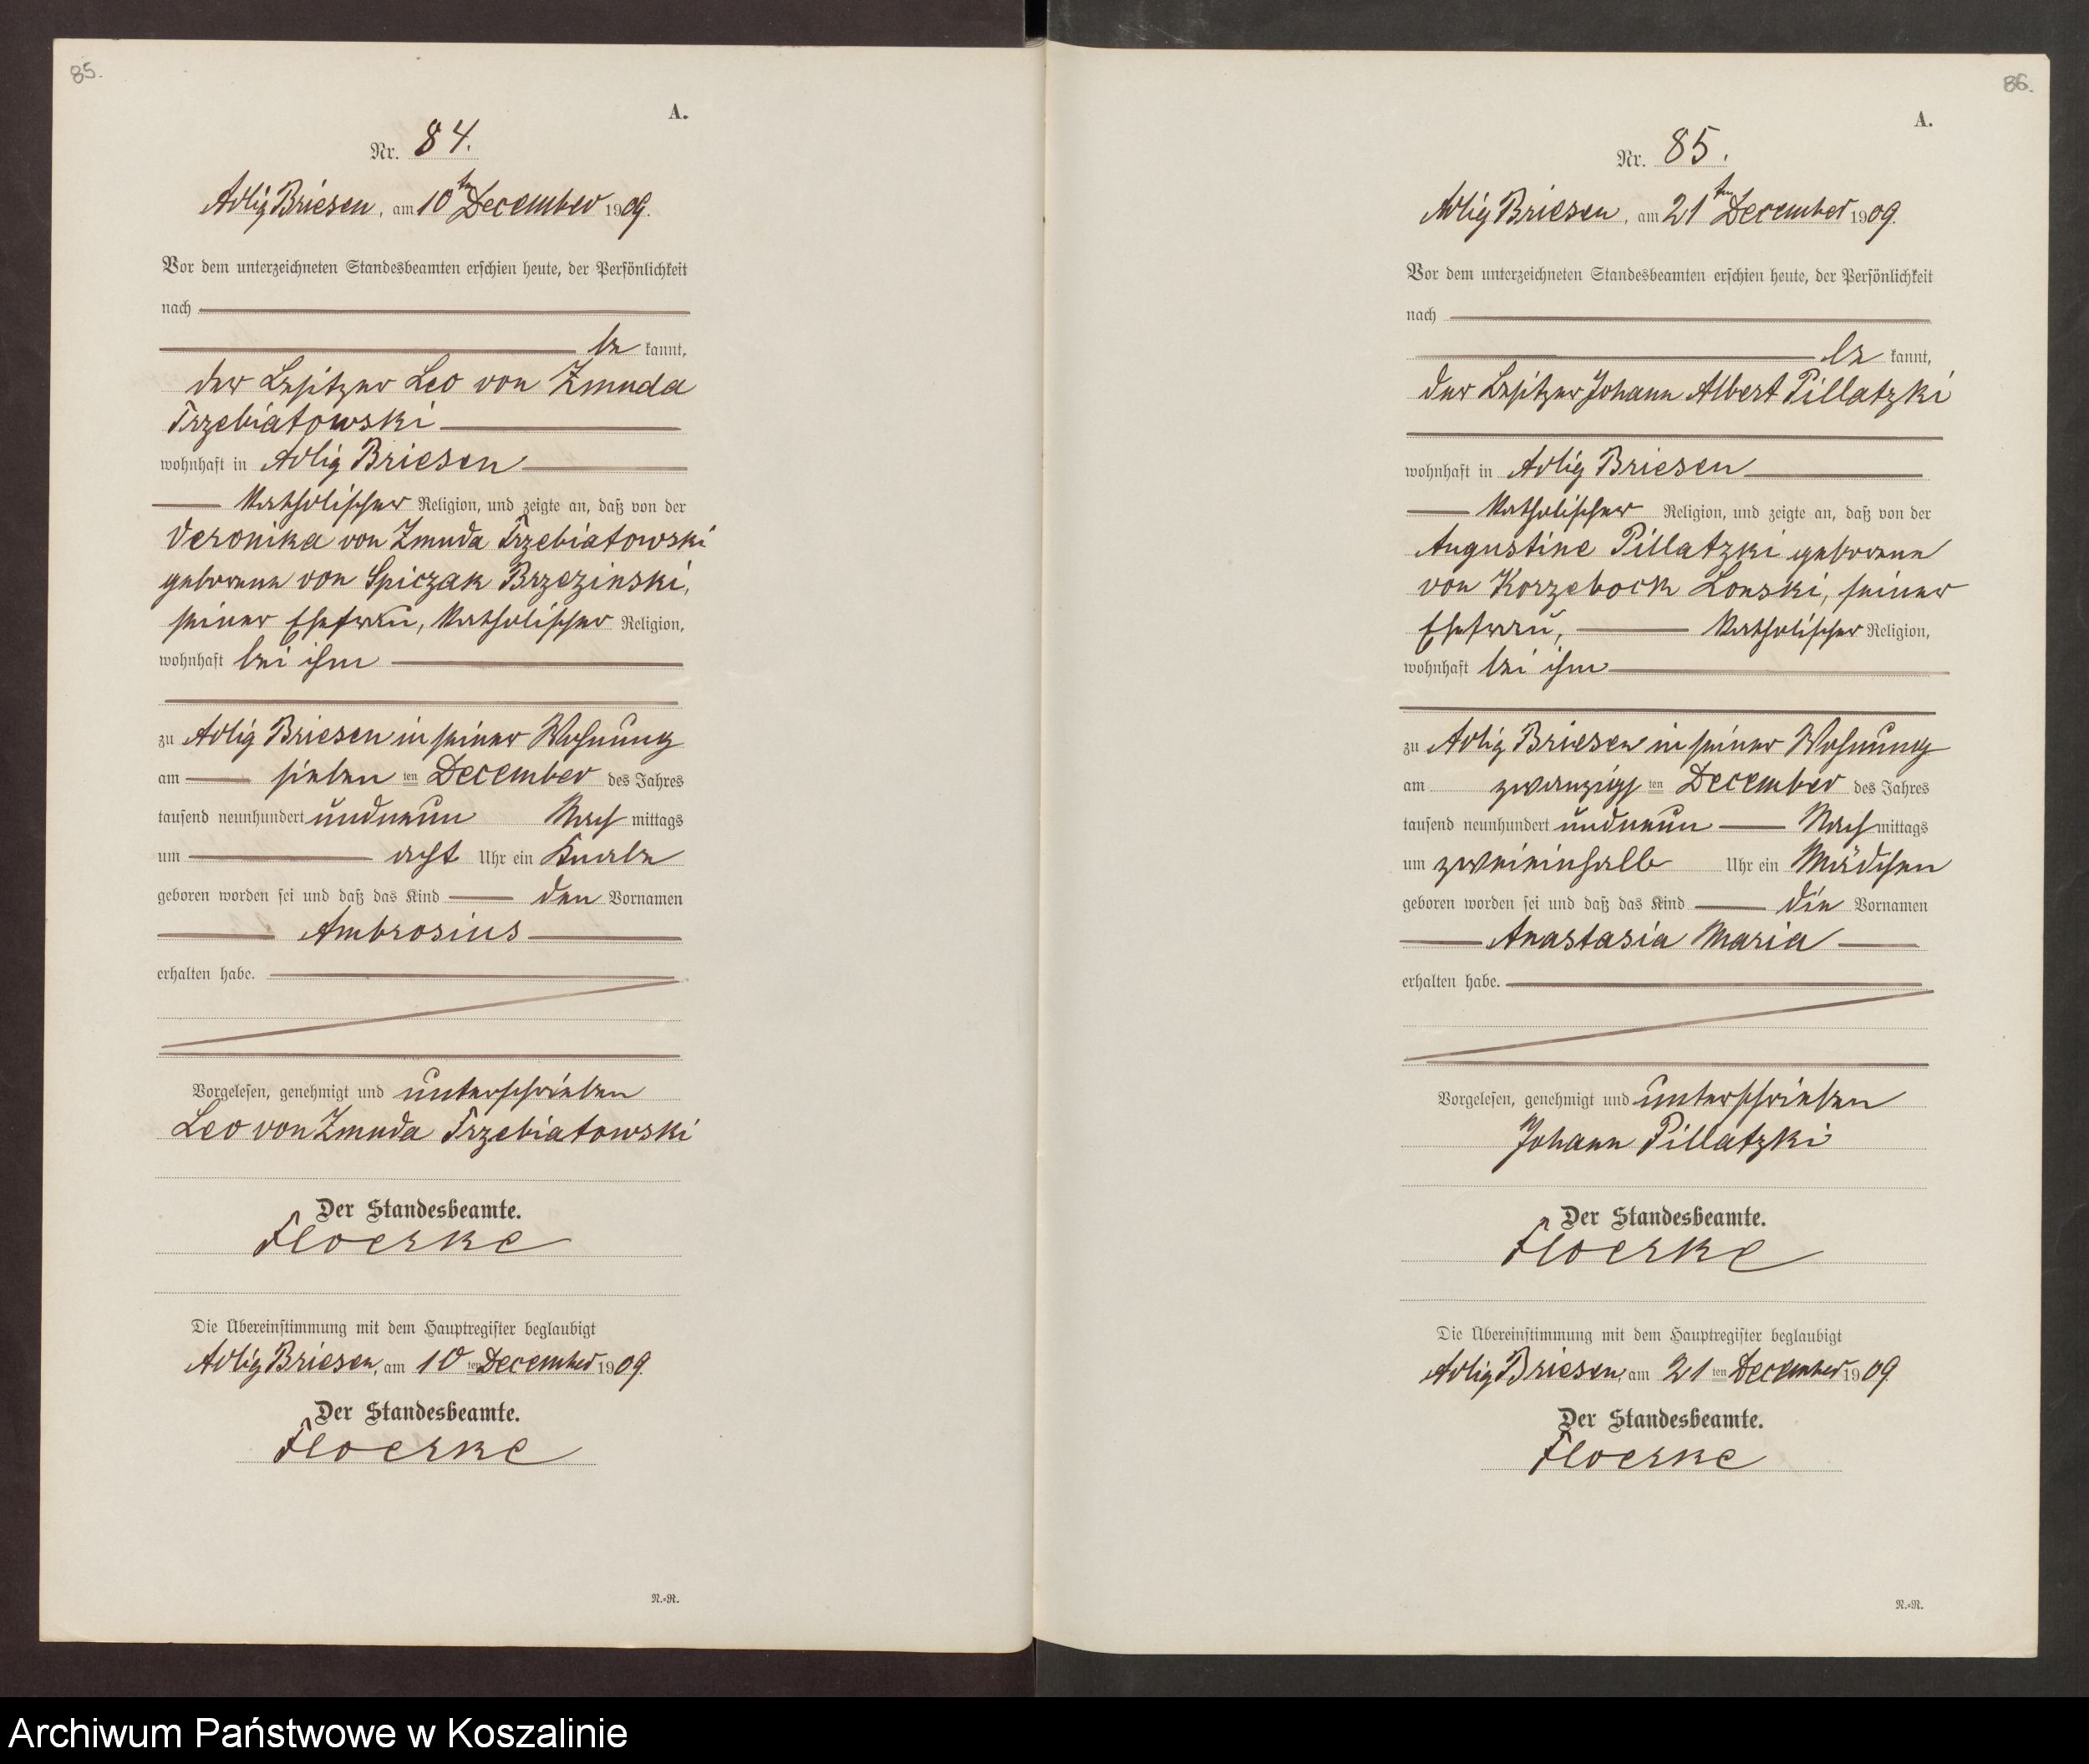 85.
A.
Nr. 84.
Adlig Briesen, am 10ten December 1909.
Vor dem unterzeichneten Standesbeamten erschien heute, der Persönlichkeit
nach
be kannt,
der Besitzer Leo von Zmuda
Trzebiatowski
wohnhaft in Adlig Briesen
katholischer Religion, und zeigte an, daß von der
Veronika von Zmuda Trzebiatowski
geborene von Spiczak Brzezinski,
seiner Ehefrau, katholischer Religion,
wohnhaft bei ihm
zu Adlig Briesen in seiner Wohnung
am sieben ten December des Jahres
tausend neunhundert undneun Nach mittags
um acht Uhr ein Knabe
geboren worden sei und daß das Kind den Vornamen
Ambrosius
erhalten habe.
Vorgelesen, genehmigt und unterschrieben
Leo von Zmuda Trzebiatowski
Der Standesbeamte.
Floerke
Die Übereinstimmung mit dem Hauptregister beglaubigt
Adlig Briesen, am 10 ten December 1909.
Der Standesbeamte.
Floerke
N.=N.
86.
A.
Nr. 85.
Adlig Briesen, am 21ten December 1909.
Vor dem unterzeichneten Standesbeamten erschien heute, der Persönlichkeit
nach
be kannt,
der Besitzer Johann Albert Pillatzki
wohnhaft in Adlig Briesen
katholischer Religion, und zeigte an, daß von der
Augustine Pillatzki geborene
von Korzebock Lonski, seiner
Ehefrau, katholischer Religion,
wohnhaft bei ihm
zu Adlig Briesen in seiner Wohnung
am zwanzigs ten December des Jahres
tausend neunhundert undneun Nach mittags
um zweieinhalb Uhr ein Mädchen
geboren worden sei und daß das Kind die Vornamen
Anastasia Maria
erhalten habe.
Vorgelesen, genehmigt und unterschrieben
Johann Pillatzki
Der Standesbeamte.
Floerke
Die Übereinstimmung mit dem Hauptregister beglaubigt
Adlig Briesen, am 21 ten December 1909.
Der Standesbeamte.
Floerke
N.=N.
Archiwum Państwowe w Koszalinie